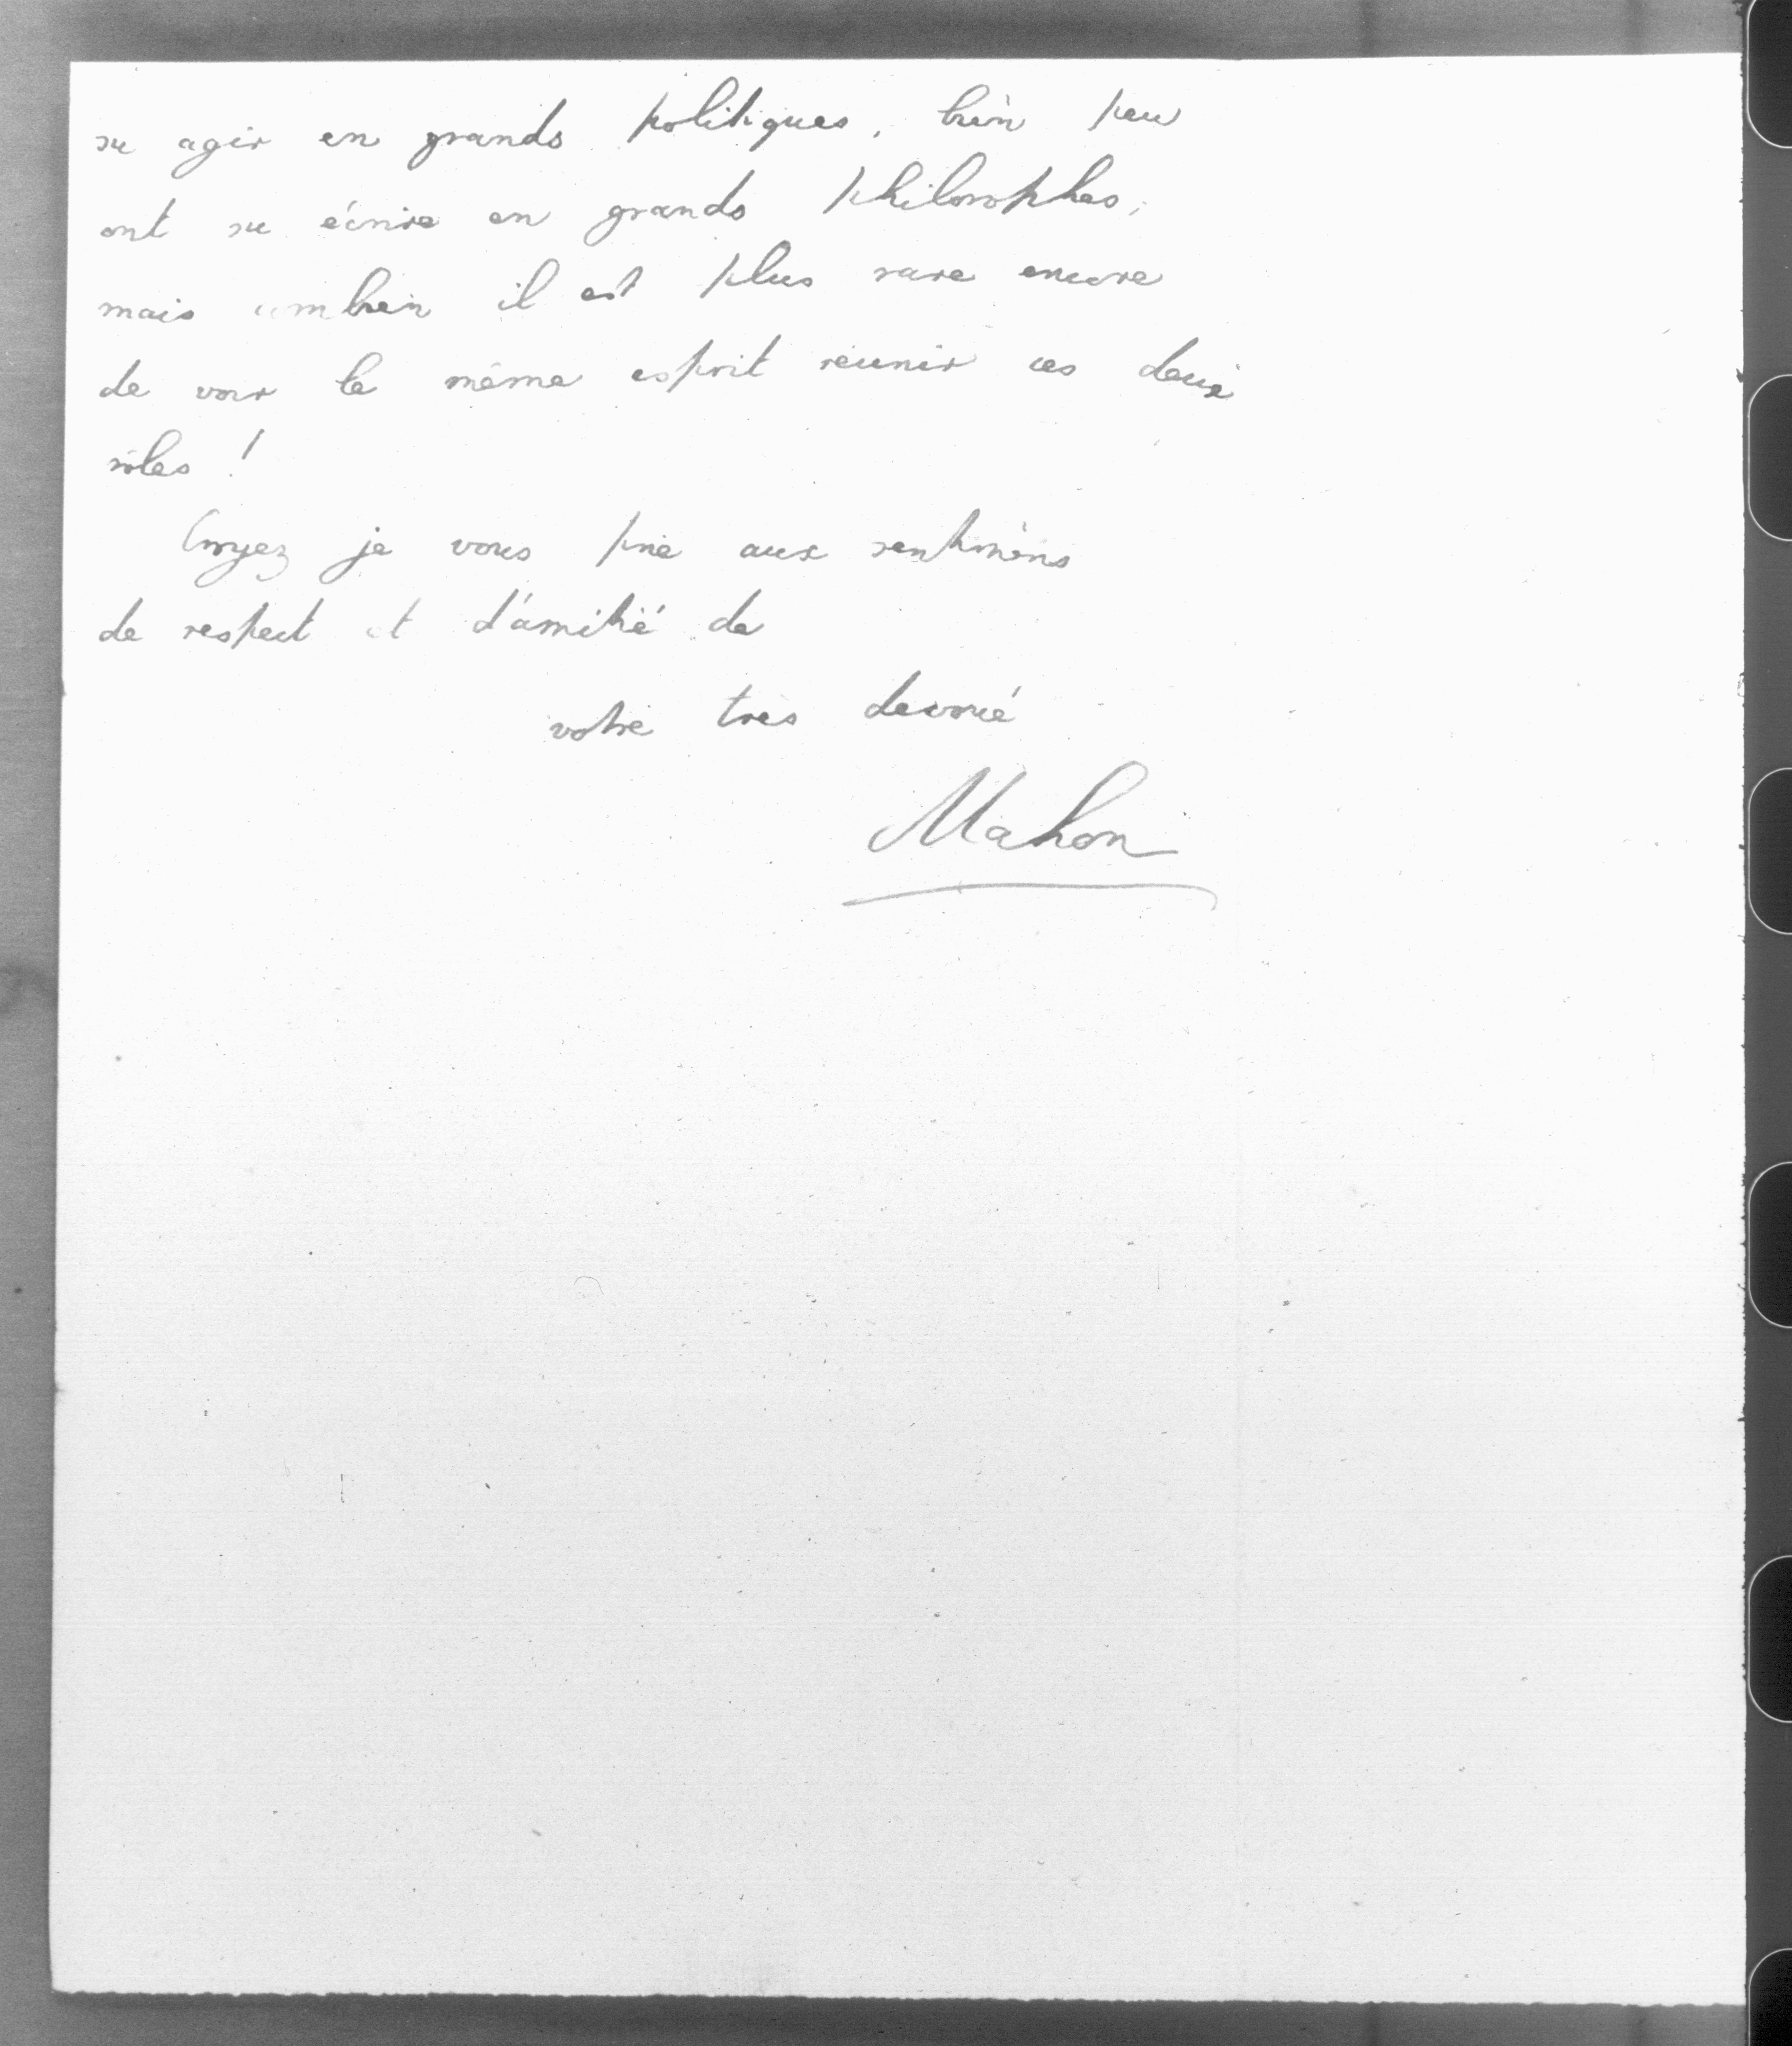 su agir en grands politiques, bien peu
ont su écrire en grands philosophes,
mais combien il est plus rare encore
de voir le même esprit réunir ces deux
rôles !
Croyez je vous prie aux sentimens
de respect et d'amitié de
votre très devoué
Mahon